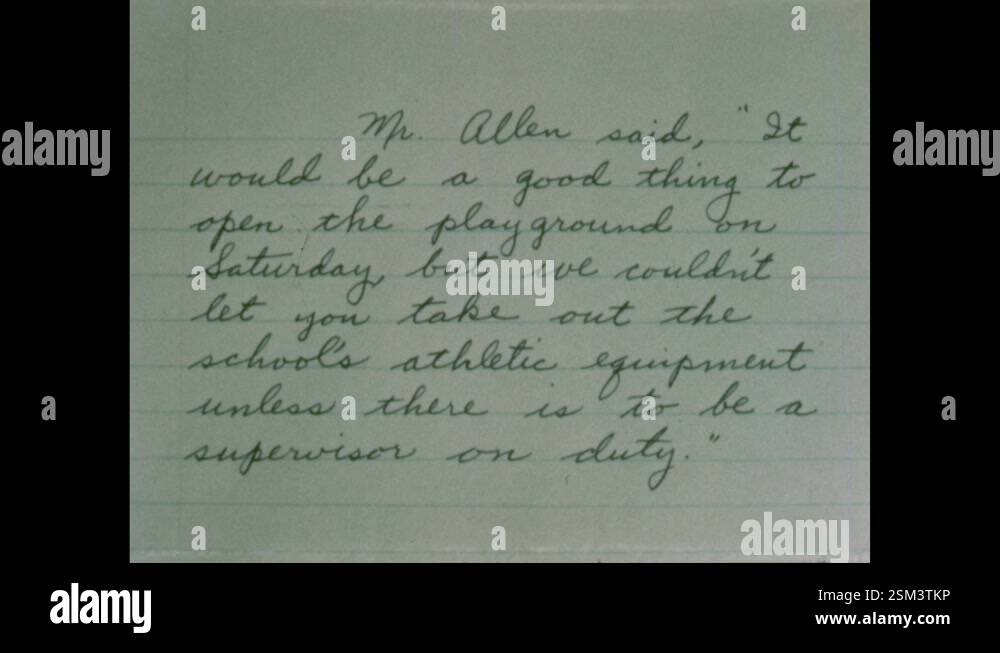 Mr. Allen said, "It
would be a good thing to
open the playground on
Saturday, but we couldn't
let you take out the
school's athletic equipment
unless there is to be a
supervisor on duty."
alamy
alamy
alamy
alamy
a
a
a
a
a
a
a
a
a
a
a
alamy
Image ID: 2SM3TKP
www.alamy.com